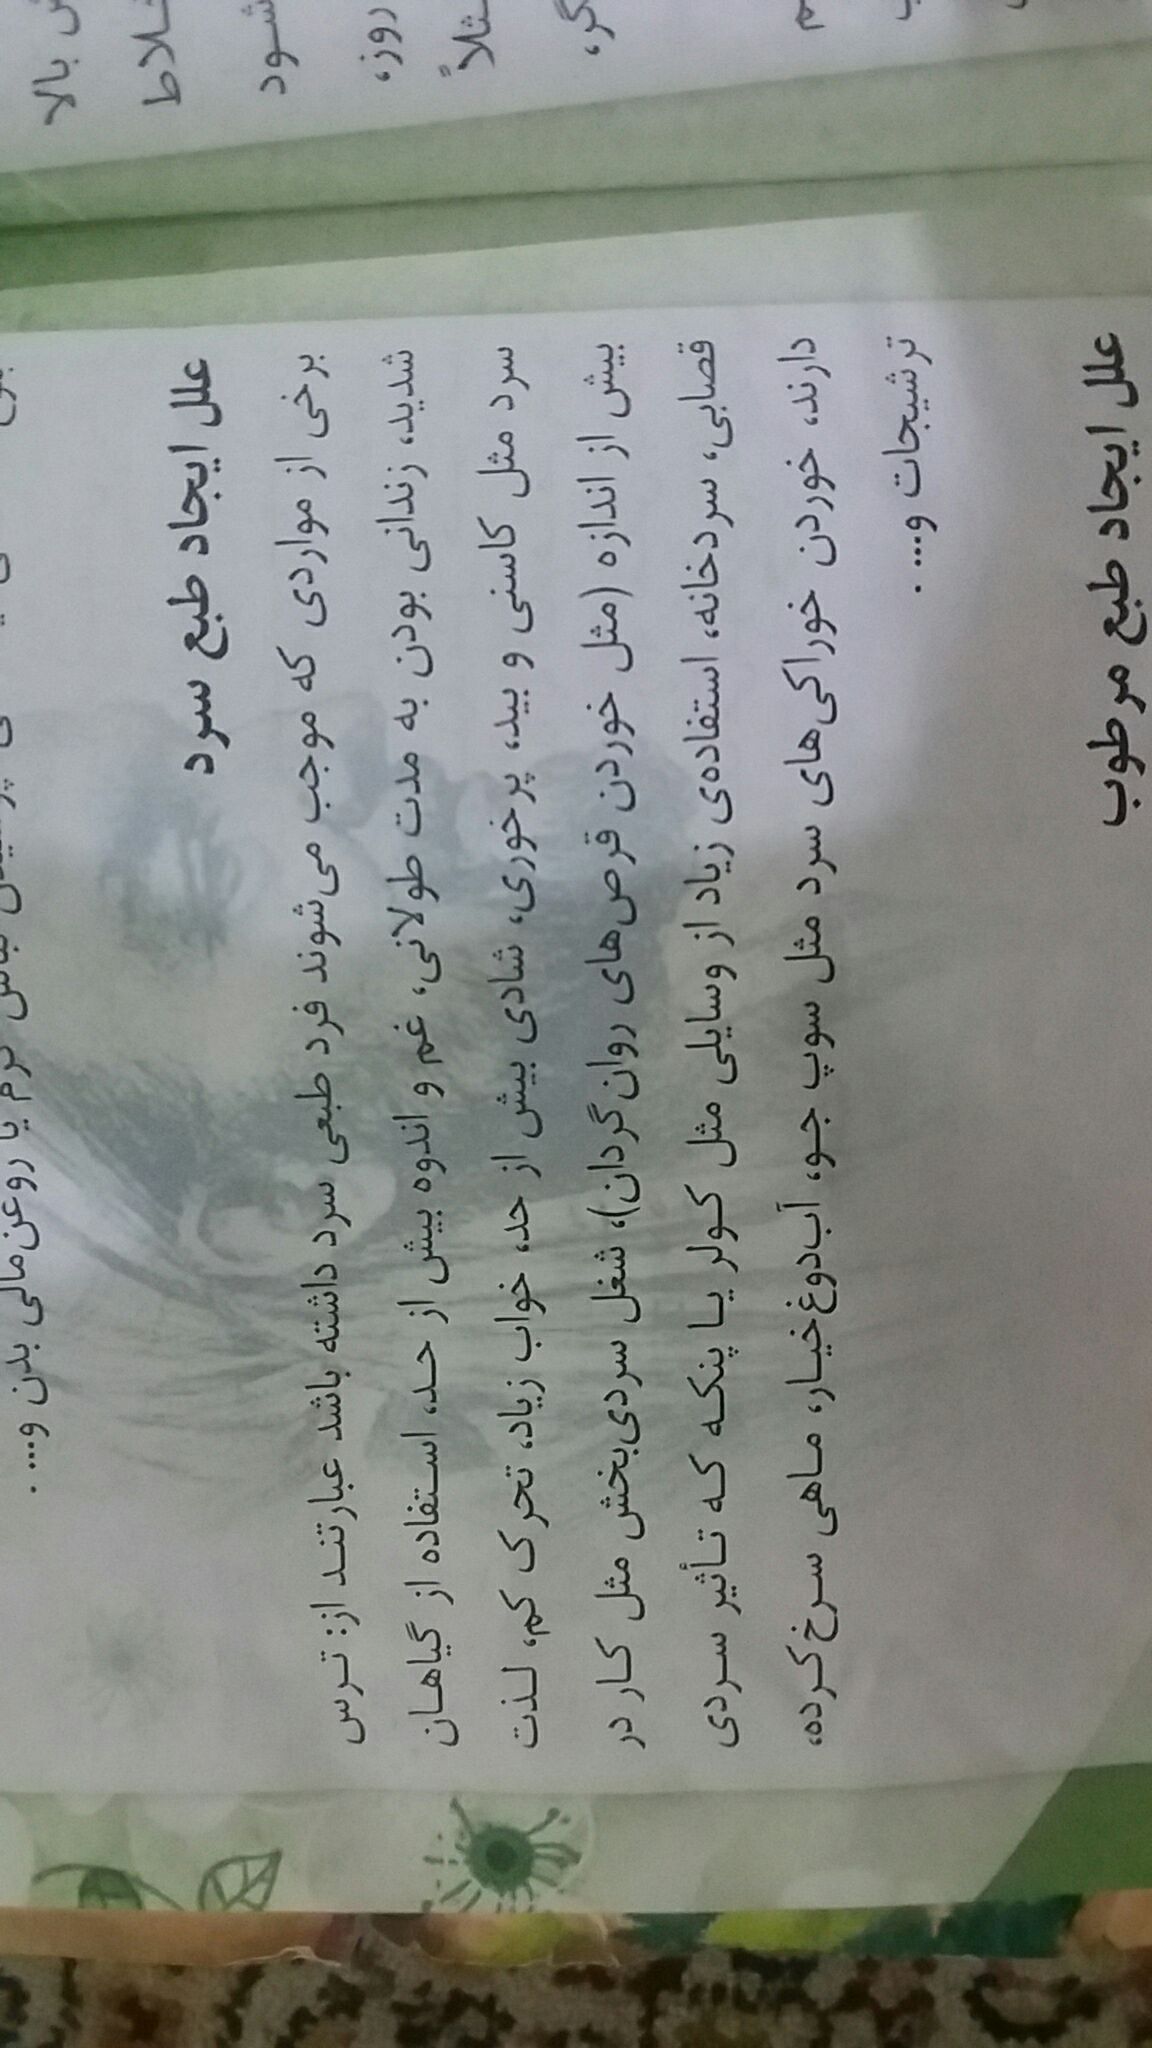 روغن‌مالی بدن و.... .
علل ایجاد طبع سرد
برخی از مواردی که موجب می‌شوند فرد طبعی سرد داشته باشد عبارتند از: ترس
شدید، زندانی بودن به مدت طولانی، غم و اندوه بیش از حد، استفاده از گیاهان
سرد مثل کاسنی و بید، پرخوری، شادی بیش از حد، خواب زیاد، تحرک کم، لذت
بیش از اندازه (مثل خوردن قرص‌های روان‌گردان)، شغل سردی‌بخش مثل کار در
قصابی، سردخانه، استفاده‌ی زیاد از وسایلی مثل کولر یا پنکه که تأثیر سردی
دارند، خوردن خوراکی‌های سرد مثل سوپ جو، آب‌دوغ‌خیار، ماهی سرخ‌کرده،
ترشیجات و.... .
علل ایجاد طبع مرطوب
بالا
شود
روز،